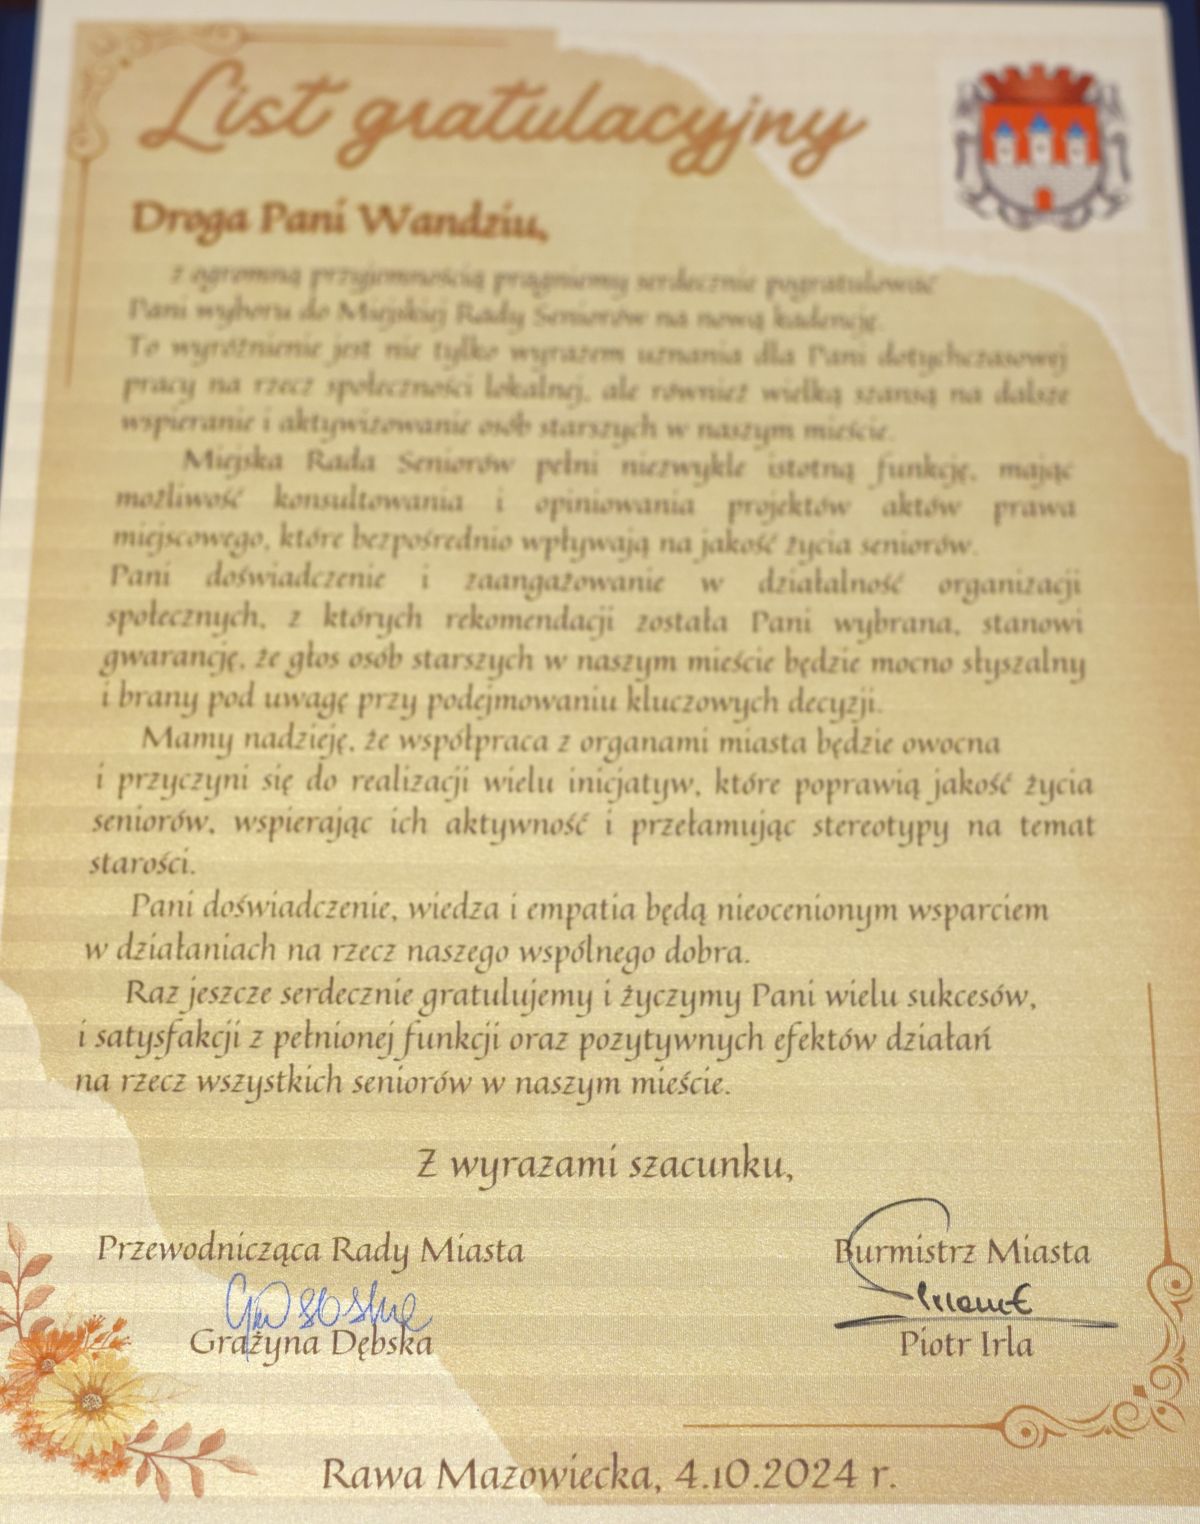 List gratulacyjny
Droga Pani Wandziu,
z ogromną przyjemnością pragniemy serdecznie pogratulować
Pani wyboru do Miejskiej Rady Seniorów na nową kadencję.
To wyróżnienie jest nie tylko wyrazem uznania dla Pani dotychczasowej
pracy na rzecz społeczności lokalnej, ale również wielką szansą na dalsze
wspieranie i aktywizowanie osób starszych w naszym mieście.
Miejska Rada Seniorów pełni niezwykle istotną funkcję, mając
możliwość konsultowania i opiniowania projektów aktów prawa
miejscowego, które bezpośrednio wpływają na jakość życia seniorów.
Pani doświadczenie i zaangażowanie w działalność organizacji
społecznych, z których rekomendacji została Pani wybrana, stanowi
gwarancję, że głos osób starszych w naszym mieście będzie mocno słyszalny
i brany pod uwagę przy podejmowaniu kluczowych decyzji.
Mamy nadzieję, że współpraca z organami miasta będzie owocna
i przyczyni się do realizacji wielu inicjatyw, które poprawią jakość życia
seniorów, wspierając ich aktywność i przełamując stereotypy na temat
starości.
Pani doświadczenie, wiedza i empatia będą nieocenionym wsparciem
w działaniach na rzecz naszego wspólnego dobra.
Raz jeszcze serdecznie gratulujemy i życzymy Pani wielu sukcesów,
i satysfakcji z pełnionej funkcji oraz pozytywnych efektów działań
na rzecz wszystkich seniorów w naszym mieście.
Z wyrazami szacunku,
Przewodnicząca Rady Miasta
Grażyna Dębska
Burmistrz Miasta
Piotr Irla
Rawa Mazowiecka, 4.10.2024 r.